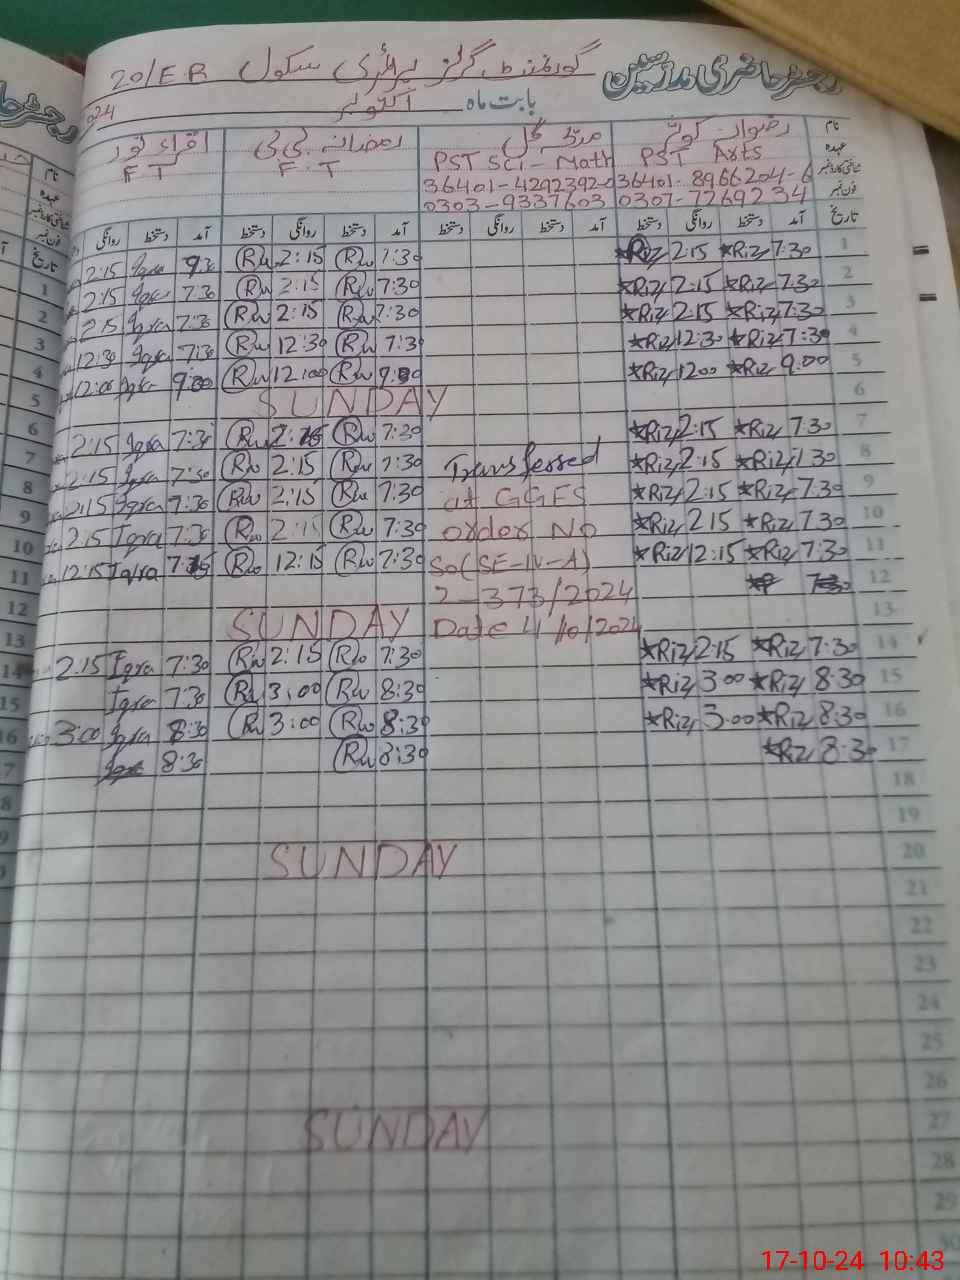 رجسٹر حاضری مدرسین گورنمنٹ گرلز پرائمری سکول 20/E.B
بابت ماہ اکتوبر 2024
نام رضوانہ کوثر گل رمضانہ بی بی اقراء نور
عہدہ PST Arts PST Sci-Math F.T F.T
شناختی کارڈ نمبر 36401-8966204-6 36401-4292392-0
فون نمبر 0307-7269234 0303-9337603
تاریخ آمد دستخط روانگی دستخط آمد دستخط روانگی دستخط آمد دستخط روانگی دستخط آمد دستخط روانگی
1 7:30 Riz 2:15 Riz 7:30 Rw 2:15 Rw Iqra 2:15
2 7:30 Riz 2:15 Riz 7:30 Rw 2:15 Rw 7:30 Iqra 2:15
3 7:30 Riz 2:15 Riz 7:30 Rw 2:15 Rw 7:30 Iqra 2:15
4 7:30 Riz 12:30 Riz 7:30 Rw 12:30 Rw 7:30 Iqra 12:30
5 9:00 Riz 1200 Riz 9:00 Rw 12:00 Rw 9:00 Iqra 12:00
6 SUNDAY
7 7:30 Riz 2:15 Riz 7:30 Rw 2:15 Rw 7:30 Iqra 2:15
8 7:30 Riz 2:15 Riz Transferred 7:30 Rw 2:15 Rw 7:30 Iqra 2:15
9 7:30 Riz 2:15 Riz at GGES 7:30 Rw 2:15 Rw 7:30 Iqra 2:15
10 7:30 Riz 2:15 Riz order No 7:30 Rw 2:15 Rw 7:30 Iqra 2:15
11 7:30 Riz 12:15 Riz So(SE-IV-A) 7:30 Rw 12:15 Rw Iqra 12:15
12 2-373/2024
13 Date 4/10/2024 SUNDAY
14 7:30 Riz 2:15 Riz 7:30 Rw 2:15 Rw 7:30 Iqra 2:15
15 8:30 Riz 3:00 Riz 8:30 Rw 3:00 Rw 7:30 Iqra
16 8:30 Riz 3:00 Riz 8:30 Rw 3:00 Rw 8:30 Iqra 3:00
17 8:30 Riz 8:30 Rw 8:30 Iqra
18
19
20 SUNDAY
21
22
23
24
25
26
27 SUNDAY
28
29
30
17-10-24 10:43